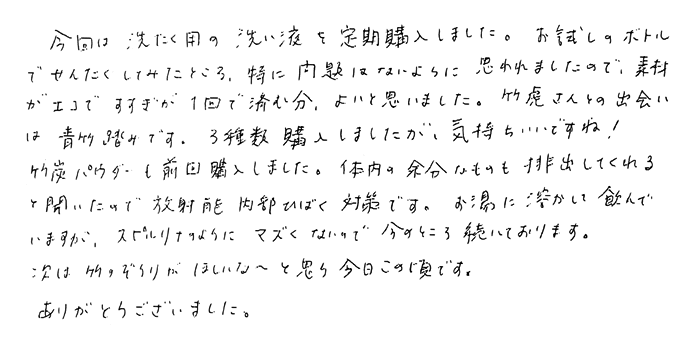 今回は洗たく用の洗い液を定期購入しました。お試しのボトル
でせんたくしてみたところ、特に問題はないように思われましたので、素材
がエコですすぎが1回で済む分、よいと思いました。竹虎さんとの出会い
は青竹踏みです。3種類購入しましたが、気持ちいいですね!
竹炭パウダーも前回購入しました。体内の余分なものも排出してくれる
と聞いたので放射能内部ひばく対策です。お湯に溶かして飲んで
いますが、スピルリナのようにマズくないので今のところ続いております。
次は竹のぞうりがほしいな〜と思う今日この頃です。
ありがとうございました。